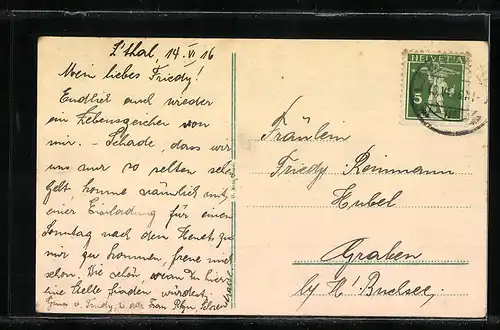 L'thal, 14. VI. 16
Mein liebes Friedy!
Endlich auch wieder
ein Lebenszeichen von
mir. – Schade, dass wir
uns nur so selten seh
komme nämlich mit
einer Einladung für einen
Sonntag nach dem Heuet zu
mir zu kommen, freue mich
schon. Wie schön wenn Du hier
eine Stelle finden würdest.
Fräulein
Friedy Reinmann
Hubel
Graben
by H' Buchsee.
HELVETIA
5